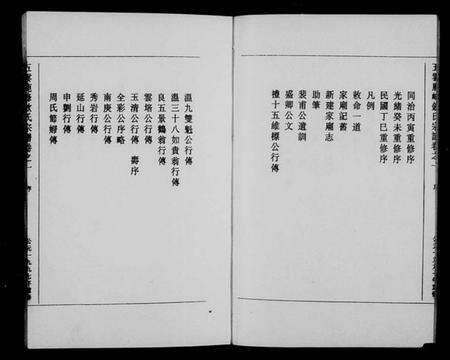 同治丙寅重修序
光緒癸未重修序
民國丁巳重修序
凡例
敕命一道
家廟記舊
新建家廟志
助筆
裴甫公遺調
盛卿公文
禮十五維標公行傳
溫九雙魁公行傳
溫三十八如貴翁行傳
良五景鶴翁行傳
雲塔公行傳
玉清公行傳 壽序
全彩公序略
南庚公行傳
秀岩行傳
延山行傳
申劉行傳
周氏節婦傳